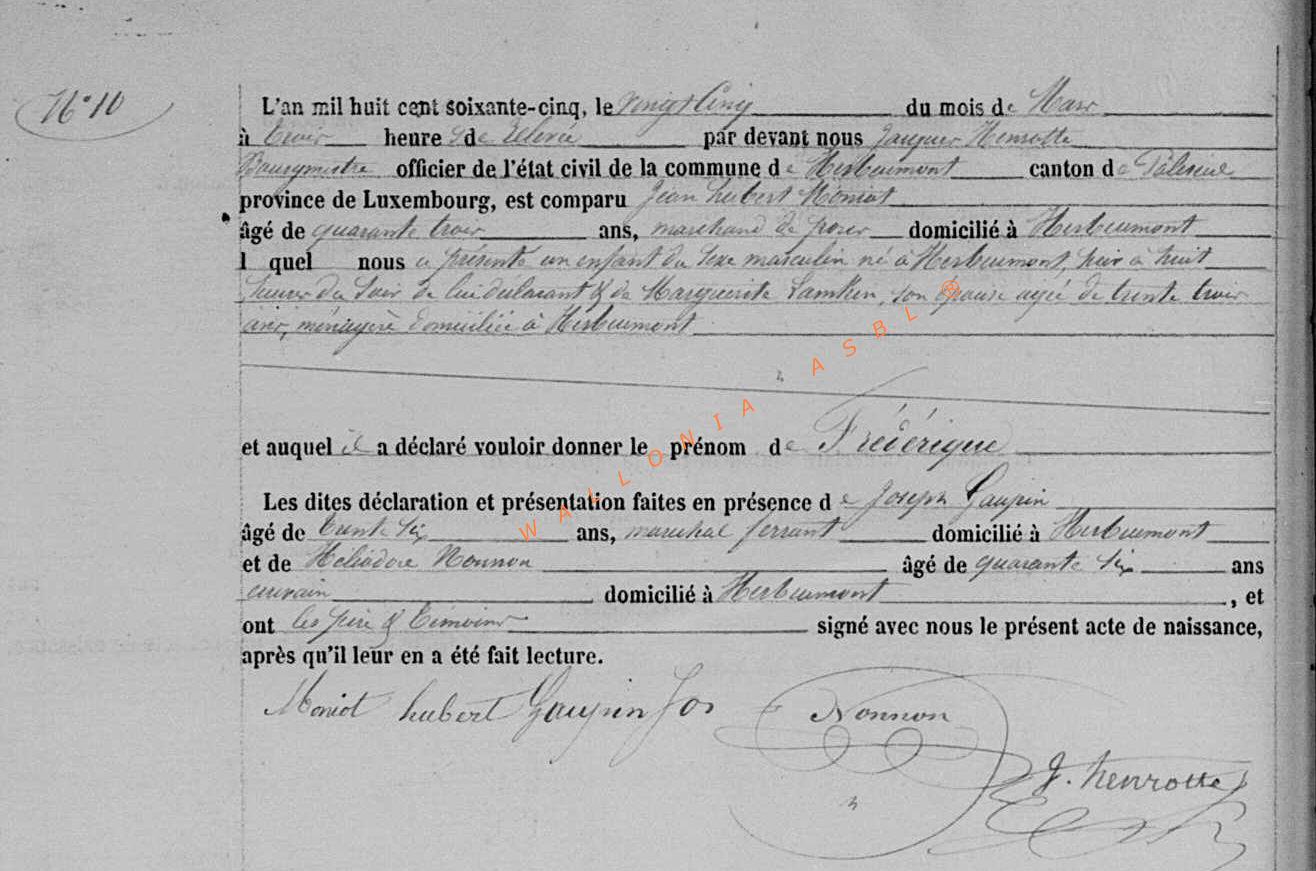 N° 10
L'an mil huit cent soixante-cinq, le vingt Cinq du mois de Mars
à trois heures de relevée par devant nous Jacques Henrotte
Bourgmestre officier de l'état civil de la commune de Herbeumont canton de Paliseul
province de Luxembourg, est comparu Jean hubert Moniot
âgé de quarante trois ans, marchand de domicilié à Herbeumont
l quel nous a présenté un enfant du sexe masculin né à Herbeumont, hier à huit
heures du soir de lui déclarant & de Marguerite Lambin, son épouse agée de trente trois
ans, ménagère domiciliée à Herbeumont
et auquel il a déclaré vouloir donner le prénom de Frédérique
Les dites déclaration et présentation faites en présence de Joseph Gaupin
âgé de trente six ans, maréchal ferrant domicilié à Herbeumont
et de Héliodore Nonnon âgé de quarante six ans
écrivain domicilié à Herbeumont, et
ont les père & témoins signé avec nous le présent acte de naissance,
après qu'il leur en a été fait lecture.
Moniot hubert Gaupin Jos Nonnon
J. henrotte
WALLONIA ASBL ®